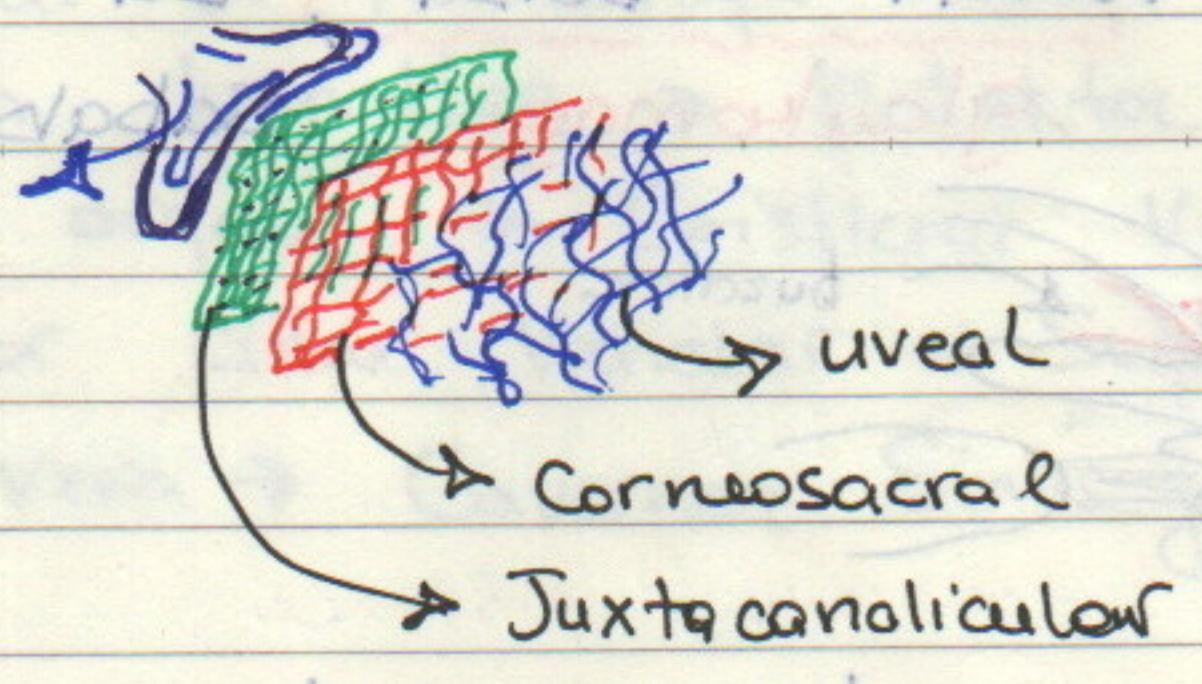 uveal
Corneosacral
Juxtacanalicular